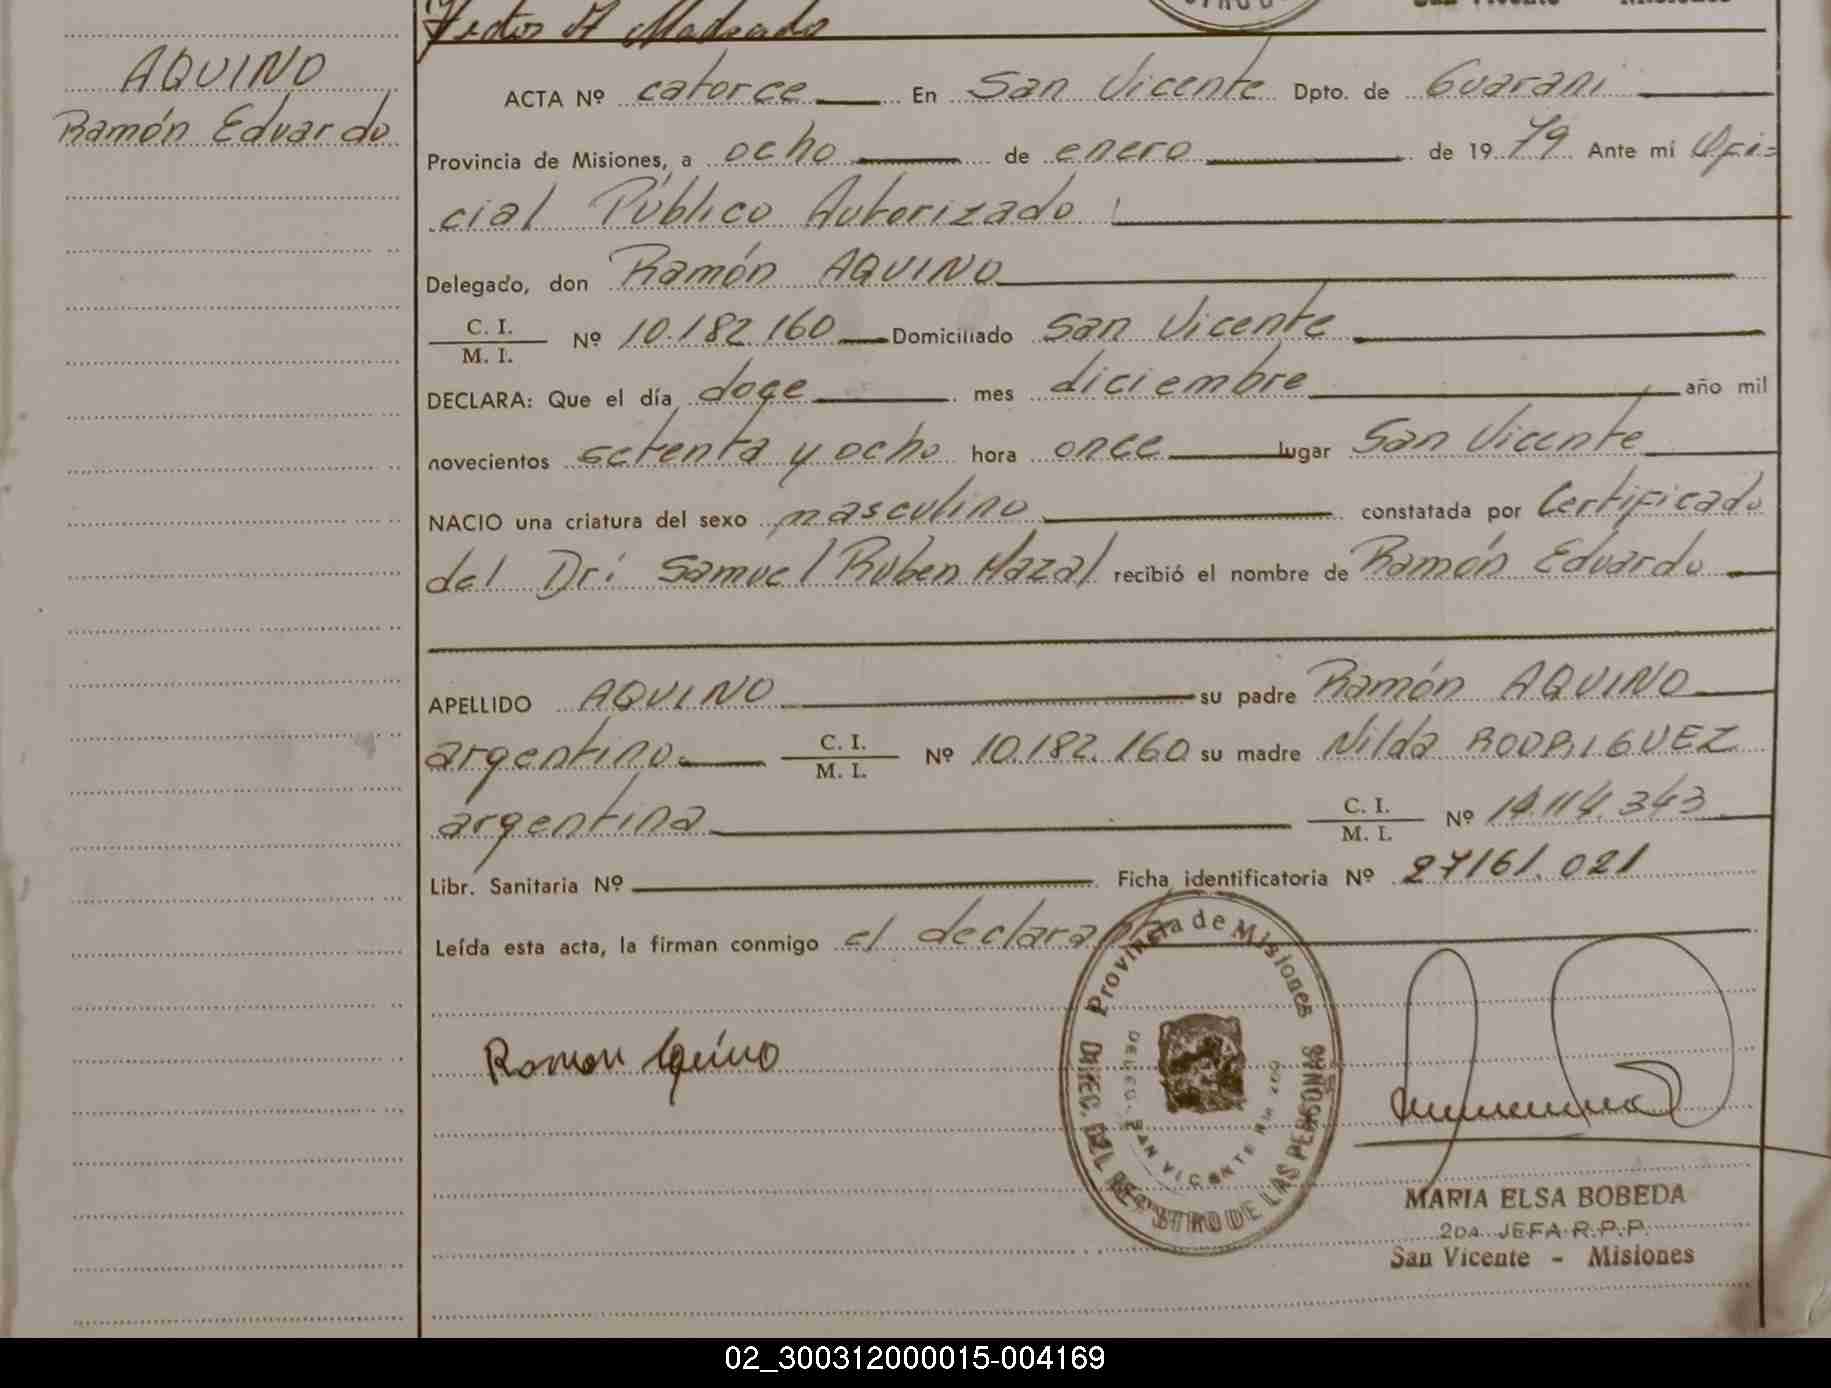 Hector A Madeado
San Vicente - Misiones
AQUINO
Ramón Eduardo
ACTA Nº catorce En San Vicente Dpto. de Guarani
Provincia de Misiones, a ocho de enero de 1979 Ante mí Ofi=
cial Público Autorizado
Delegado, don Ramón AQUINO
C. I.
M. I. Nº 10.182.160 Domiciliado San Vicente
DECLARA: Que el día doce mes diciembre año mil
novecientos setenta y ocho hora once lugar San Vicente
NACIO una criatura del sexo masculino constatada por Certificado
del Dr: Samuel Ruben Mazal recibió el nombre de Ramón Eduardo
APELLIDO AQUINO su padre Ramón AQUINO
argentino C. I.
M. I. Nº 10.182.160 su madre Nilda RODRIGUEZ
argentina C. I.
M. I. Nº 14.114.343
Libr. Sanitaria Nº Ficha identificatoria Nº 27161.021
Leída esta acta, la firman conmigo el declarante
Ramon Aquino
Provincia de Misiones
DIREC. DEL REGISTRO DE LAS PERSONAS
DELEG. SAN VICENTE
MARIA ELSA BOBEDA
2DA. JEFA R.P.P.
San Vicente - Misiones
02_300312000015-004169